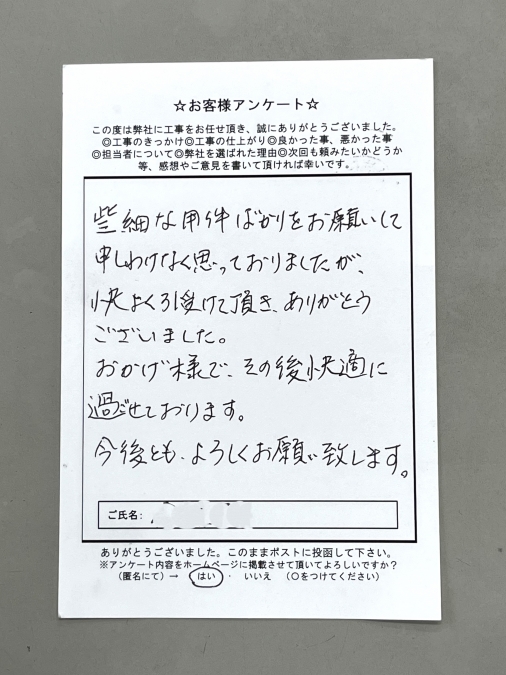 ☆お客様アンケート☆
この度は弊社に工事をお任せ頂き、誠にありがとうございました。
◎工事のきっかけ◎工事の仕上がり◎良かった事、悪かった事
◎担当者について◎弊社を選ばれた理由◎次回も頼みたいかどうか
等、感想やご意見を書いて頂ければ幸いです。
些細な用件ばかりをお願いして
申しわけなく思っておりましたが、
快よく引受けて頂き、ありがとう
ございました。
おかげ様で、その後快適に
過ごせております。
今後とも、よろしくお願い致します。
ご氏名:
ありがとうございました。このままポストに投函して下さい。
※アンケート内容をホームページに掲載させて頂いてよろしいですか?
(匿名にて)→ はい ・ いいえ (○をつけてください)
1